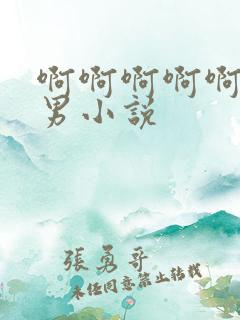 啊啊啊啊啊
男小説
張勇哥
未经同意禁止转载